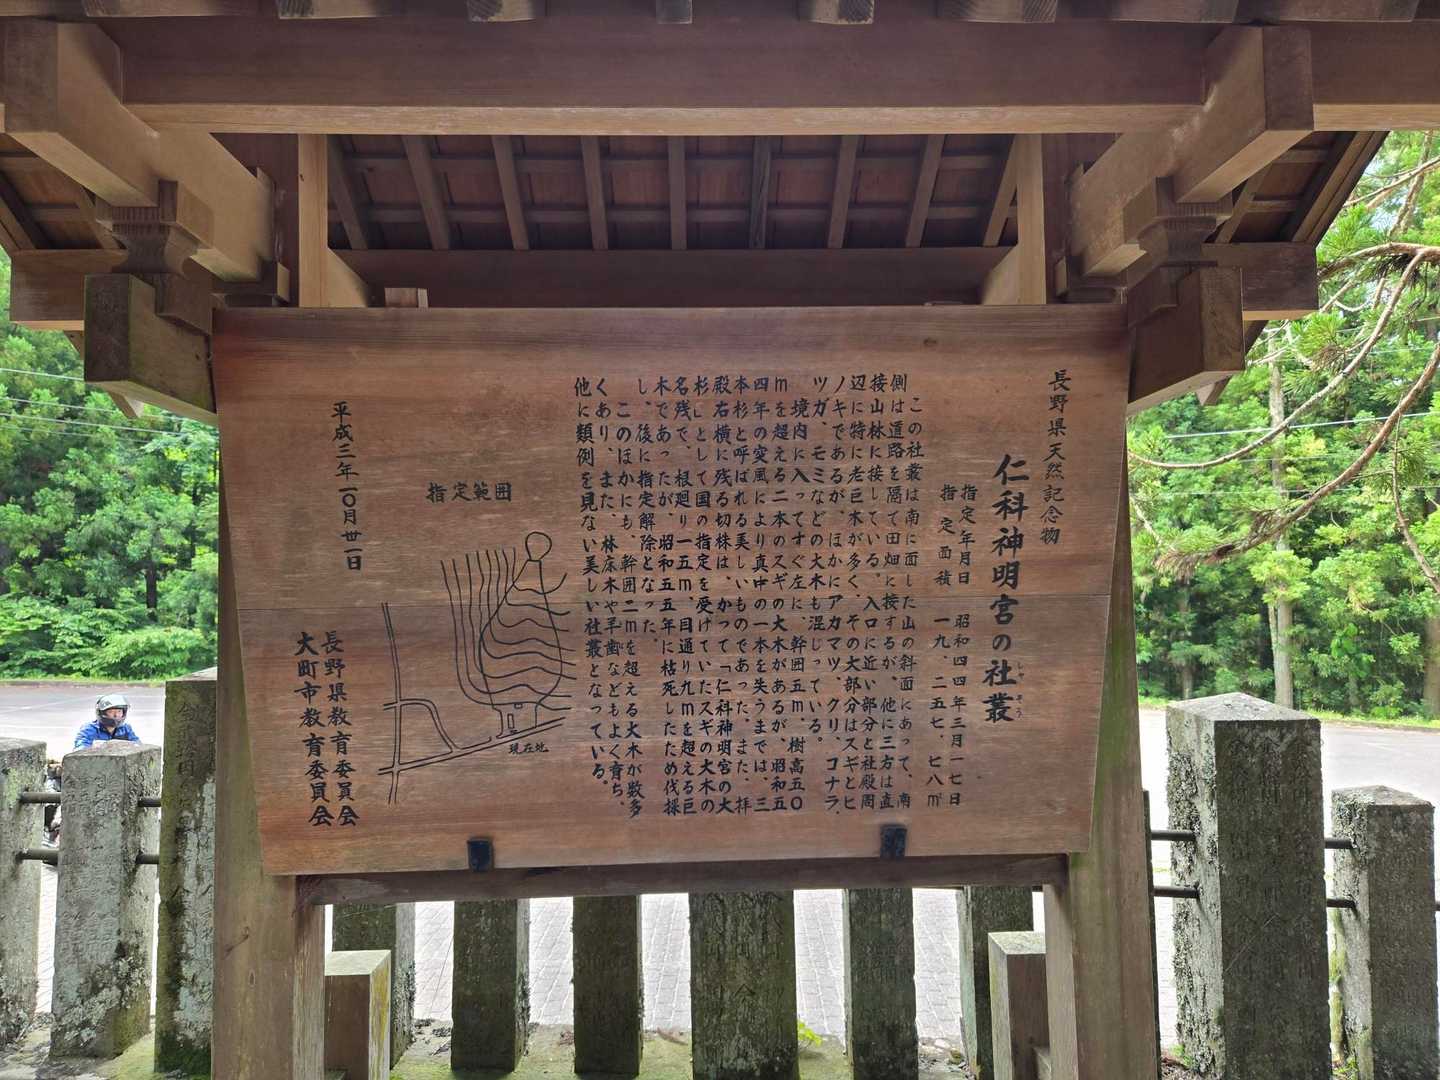 長野県天然記念物
仁科神明宮の社叢
しゃそう
指定年月日 昭和四四年三月一七日
指定面積 一九、二五七、七八㎡
この社叢は南に面した山の斜面にあって、南
側は道路を隔て田畑に接するが、他に三方は直
接山林に接している。入口に近い部分と社殿周
辺に特に老巨木が多く、その大部分はスギとヒ
ノキであるが、ほかにアカマツ、クリ、コナラ、
ツガ、モミなどの大木も混じっている。
境内に入ってすぐ左に、幹囲五m、樹高五〇
mを超える二本のスギの大木があるが、昭和五
四年の突風により真中の一本を失うまでは、三
本杉と呼ばれる美しいものであった。また、拝
殿右横に残る切株は、かつて「仁科神明宮の大
杉」として国の指定を受けていたスギの大木の
名残で、根廻り一五m、目通り九mを超える巨
木であったが、昭和五五年に枯死したため伐採
し、後に指定解除となった。
このほかにも、幹囲二mを超える大木が数多
くあり、また、林床木や羊歯などもよく育ち、
他に類例を見ない美しい社叢となっている。
指定範囲
現在地
平成三年一〇月廿一日
長野県教育委員会
大町市教育委員会